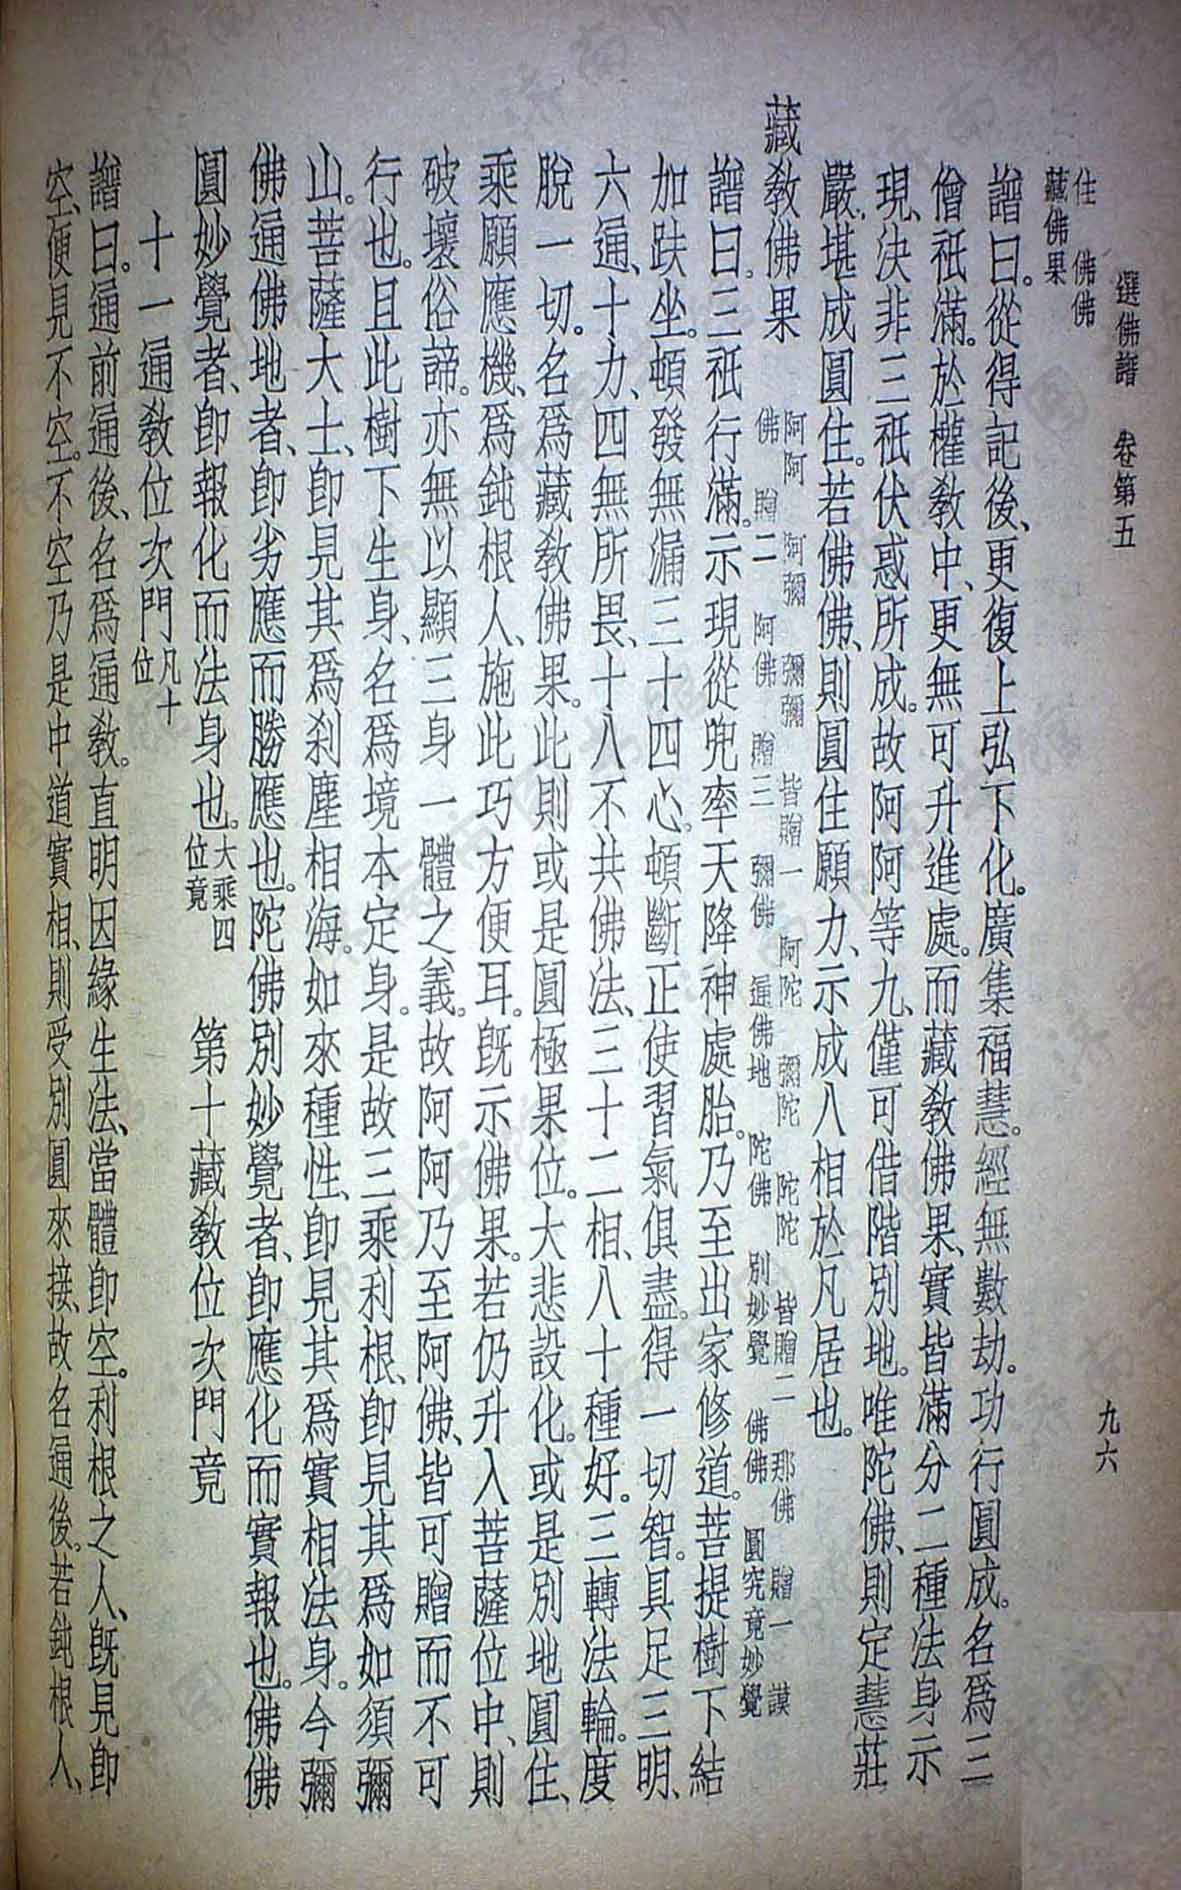 選佛譜　卷第五　九六
住　佛佛
藏佛果
譜曰。從得記後、更復上弘下化。廣集福慧。經無數劫。功行圓成。名爲三
僧祇滿。於權教中、更無可升進處。而藏教佛果、實皆滿分二種法身示
現、決非三祇伏惑所成。故阿阿等九、僅可借階別地。唯陀佛、則定慧莊
嚴、堪成圓住。若佛佛、則圓住願力、示成八相於凡居也。
藏教佛果
阿阿　阿彌　彌彌　皆贈一　阿陀　彌陀　陀陀　皆贈二　那佛　贈一　謨
佛　贈二　阿佛　贈三　彌佛　通佛地　陀佛　別妙覺　佛佛　圓究竟妙覺
譜曰。三祇行滿。示現從兜率天降神處胎。乃至出家修道。菩提樹下結
加趺坐。頓發無漏三十四心。頓斷正使習氣俱盡。得一切智。具足三明、
六通、十力、四無所畏、十八不共佛法、三十二相、八十種好。三轉法輪。度
脫一切。名爲藏教佛果。此則或是圓極果位。大悲設化。或是別地圓住、
乘願應機、爲鈍根人、施此巧方便耳。旣示佛果。若仍升入菩薩位中、則
破壞俗諦。亦無以顯三身一體之義。故阿阿乃至阿佛、皆可贈而不可
行也。且此樹下生身、名爲境本定身。是故三乘利根、卽見其爲如須彌
山。菩薩大士、卽見其爲刹塵相海。如來種性、卽見其爲實相法身。今彌
佛通佛地者、卽劣應而勝應也。陀佛別妙覺者、卽應化而實報也。佛佛
圓妙覺者、卽報化而法身也。大乘四位竟　第十藏教位次門竟
十一通教位次門凡十位
譜曰。通前通後、名爲通教。直明因緣生法、當體卽空。利根之人、旣見卽
空、便見不空。不空乃是中道實相、則受別圓來接、故名通後。若鈍根人、